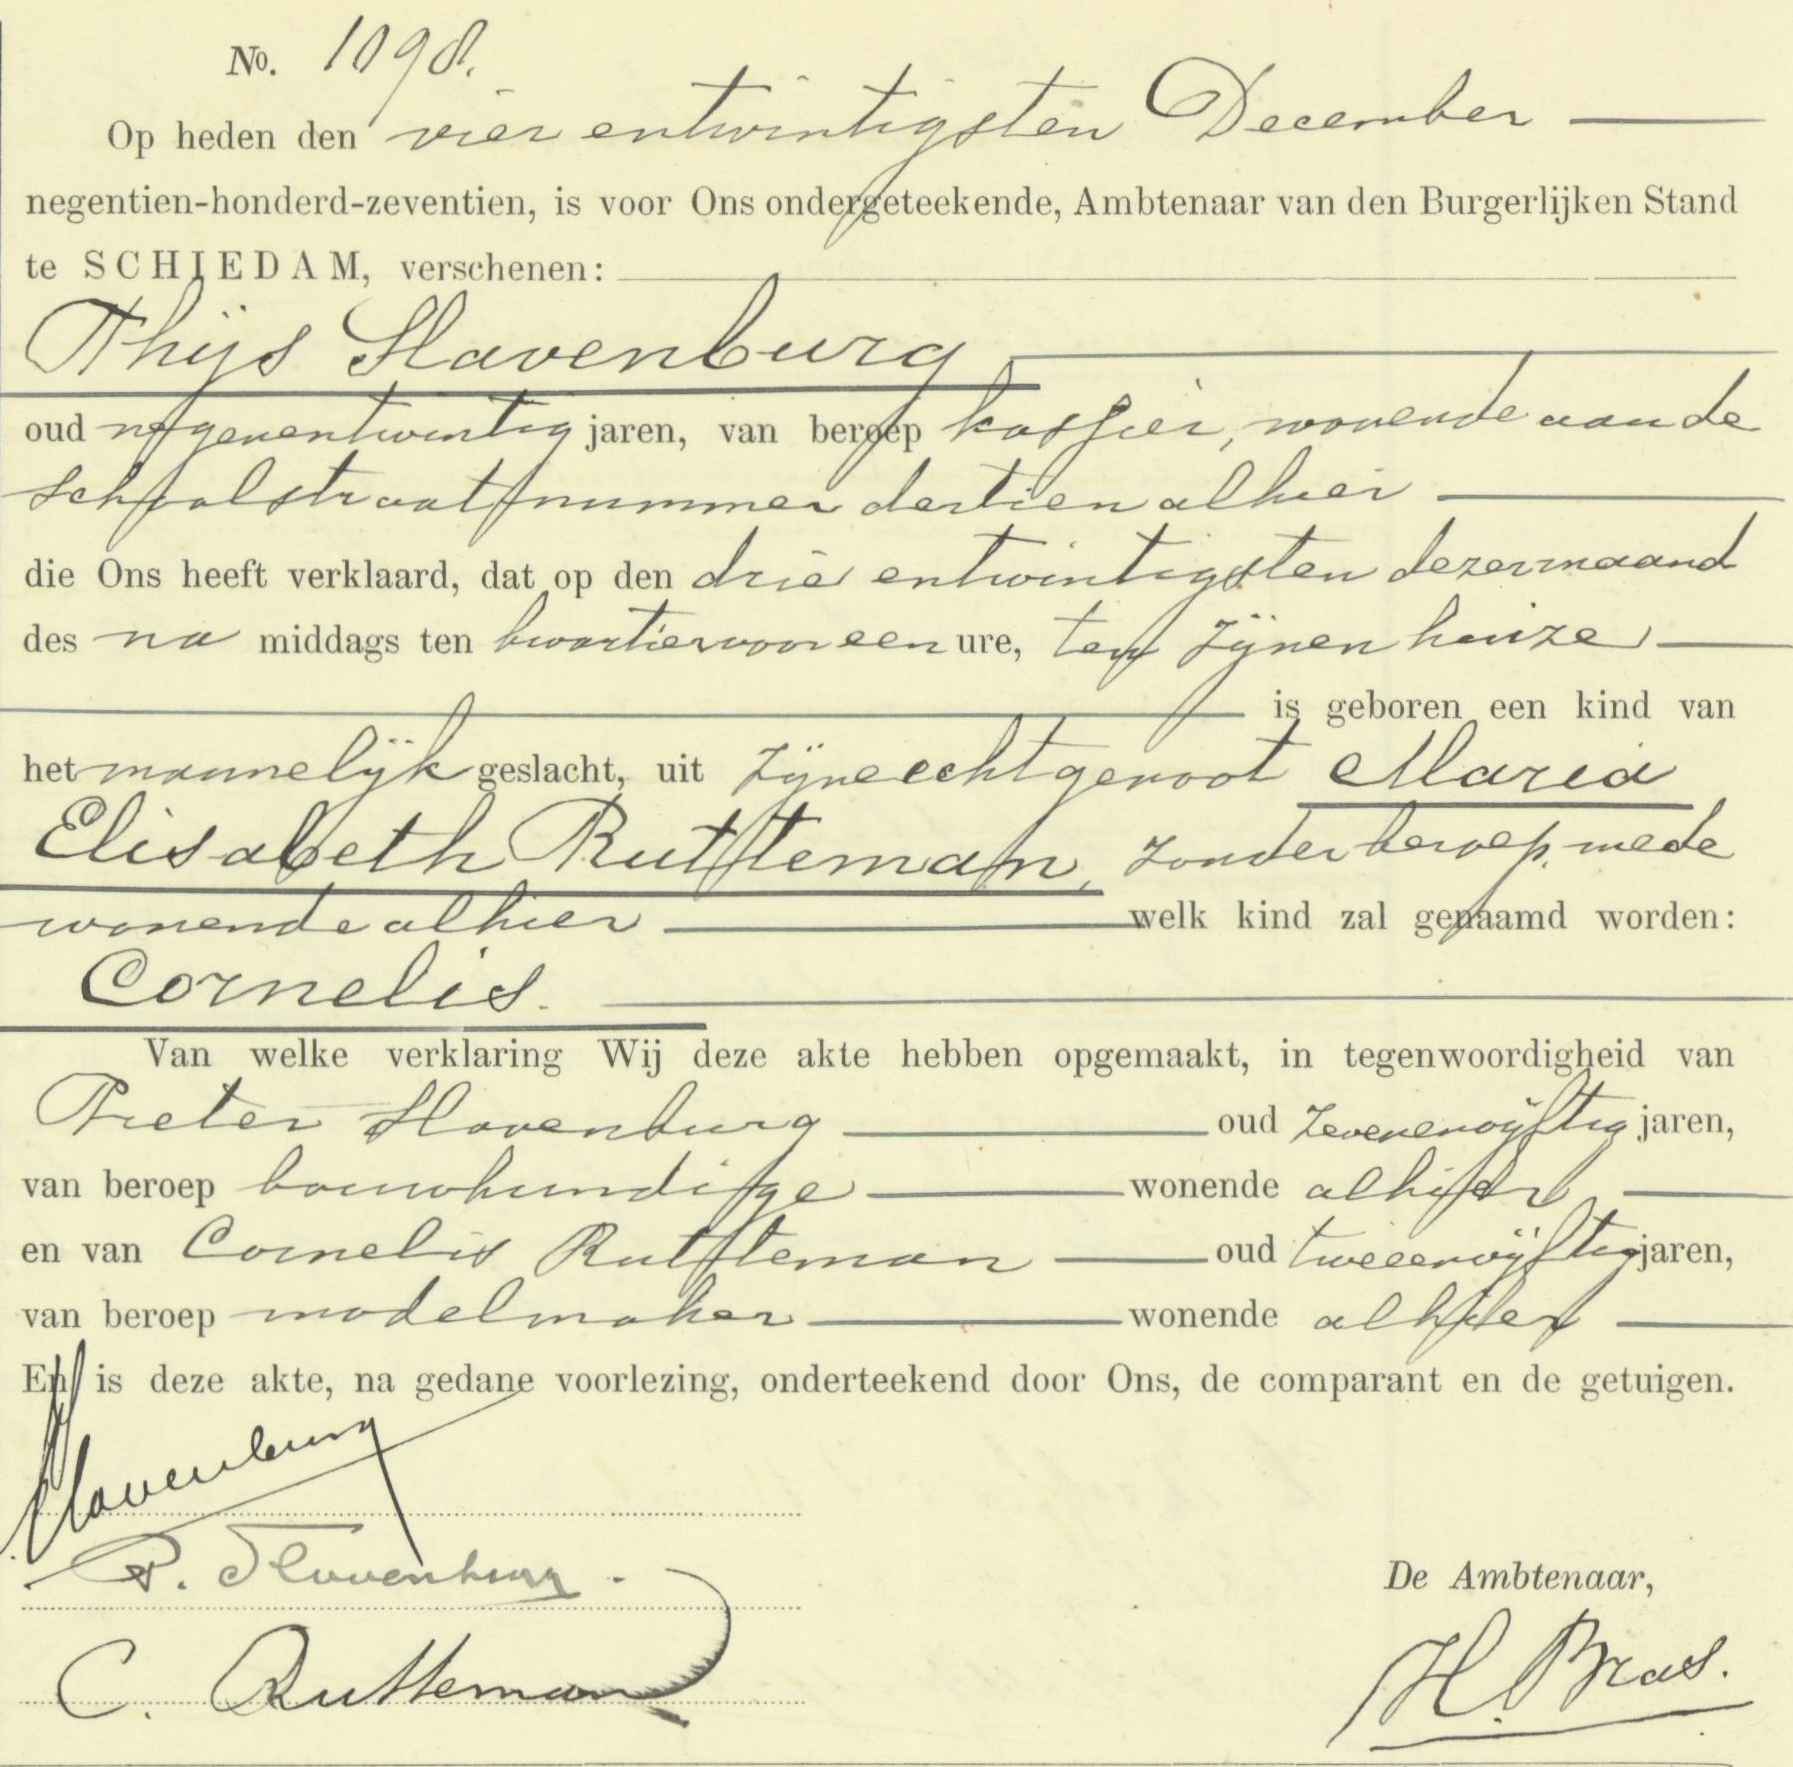 No. 1098.
Op heden den vier entwintigsten December
negentien-honderd-zeventien, is voor Ons ondergeteekende, Ambtenaar van den Burgerlijken Stand
te SCHIEDAM, verschenen:
Thijs Slavenburg
oud negenentwintig jaren, van beroep kassier, wonende aan de
Schoolstraat nummer dertien alhier
die Ons heeft verklaard, dat op den drie entwintigsten dezer maand
des na middags ten kwartier voor een ure, ten zijnen huize
is geboren een kind van
het mannelijk geslacht, uit zijne echtgenoot Maria
Elisabeth Rutteman, zonder beroep, mede
wonende alhier welk kind zal genaamd worden:
Cornelis.
Van welke verklaring Wij deze akte hebben opgemaakt, in tegenwoordigheid van
Pieter Slavenburg oud zevenenvijftig jaren,
van beroep bouwkundige wonende alhier
en van Cornelis Rutteman oud tweeenvijftig jaren,
van beroep modelmaker wonende alhier
En is deze akte, na gedane voorlezing, onderteekend door Ons, de comparant en de getuigen.
Slavenburg
P. Slavenburg.
De Ambtenaar,
C. Rutteman
H. Bras.